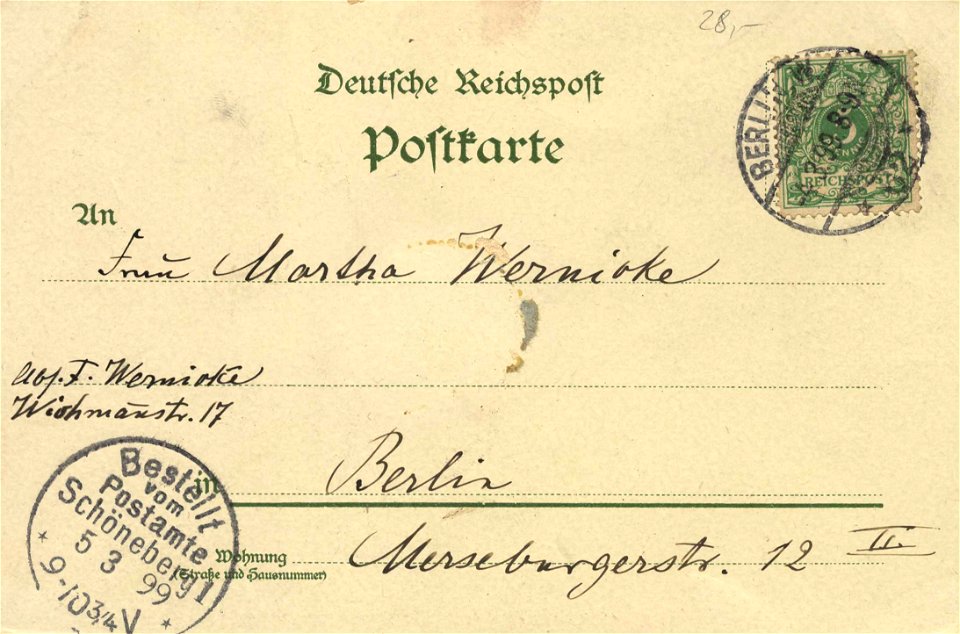 28,-
Deutsche Reichspost
Postkarte
REICHSPOST
BERLIN W
99. 8-9
An
Frau Martha Wernicke
Abs. F. Wernicke
Wichmanstr. 17
in Berlin
Bestellt
vom
Postamte
Schöneberg 1
5 3 99
9-10 3/4 V
Wohnung
(Straße und Hausnummer)
Merseburgerstr. 12 II.